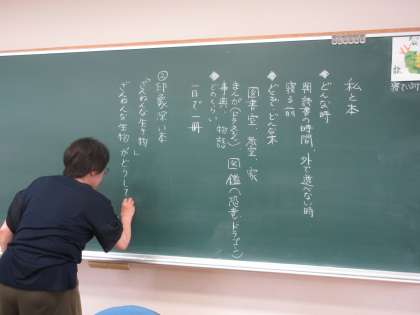 私と本
◆どんな時
朝読書の時間、外で遊べない時
寝る前
◆どこで、どんな本
図書室、教室、家
まんが(ドラえもん) 図鑑(恐竜、ドラゴン)
事典 物語
◆どのくらい
一日で一冊
②印象深い本
「ざんねんな生き物」
ざんねんな生物がどうして